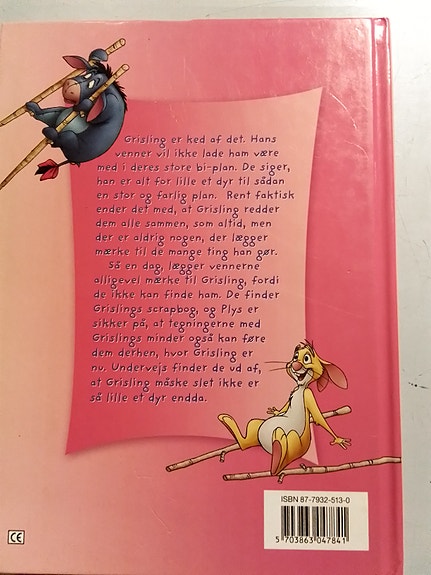 Grisling er ked af det. Hans
venner vil ikke lade ham være
med i deres store bi-plan. De siger,
han er alt for lille et dyr til sådan
en stor og farlig plan. Rent faktisk
ender det med, at Grisling redder
dem alle sammen, som altid, men
der er aldrig nogen, der lægger
mærke til de mange ting han gør.
Så en dag, lægger vennerne
alligevel mærke til Grisling, fordi
de ikke kan finde ham. De finder
Grislings scrapbog, og Plys er
sikker på, at tegningerne med
Grislings minder også kan føre
dem derhen, hvor Grisling er
nu. Undervejs finder de ud af,
at Grisling måske slet ikke er
så lille et dyr endda.
ISBN 87-7932-513-0
5 703863 047841
CE